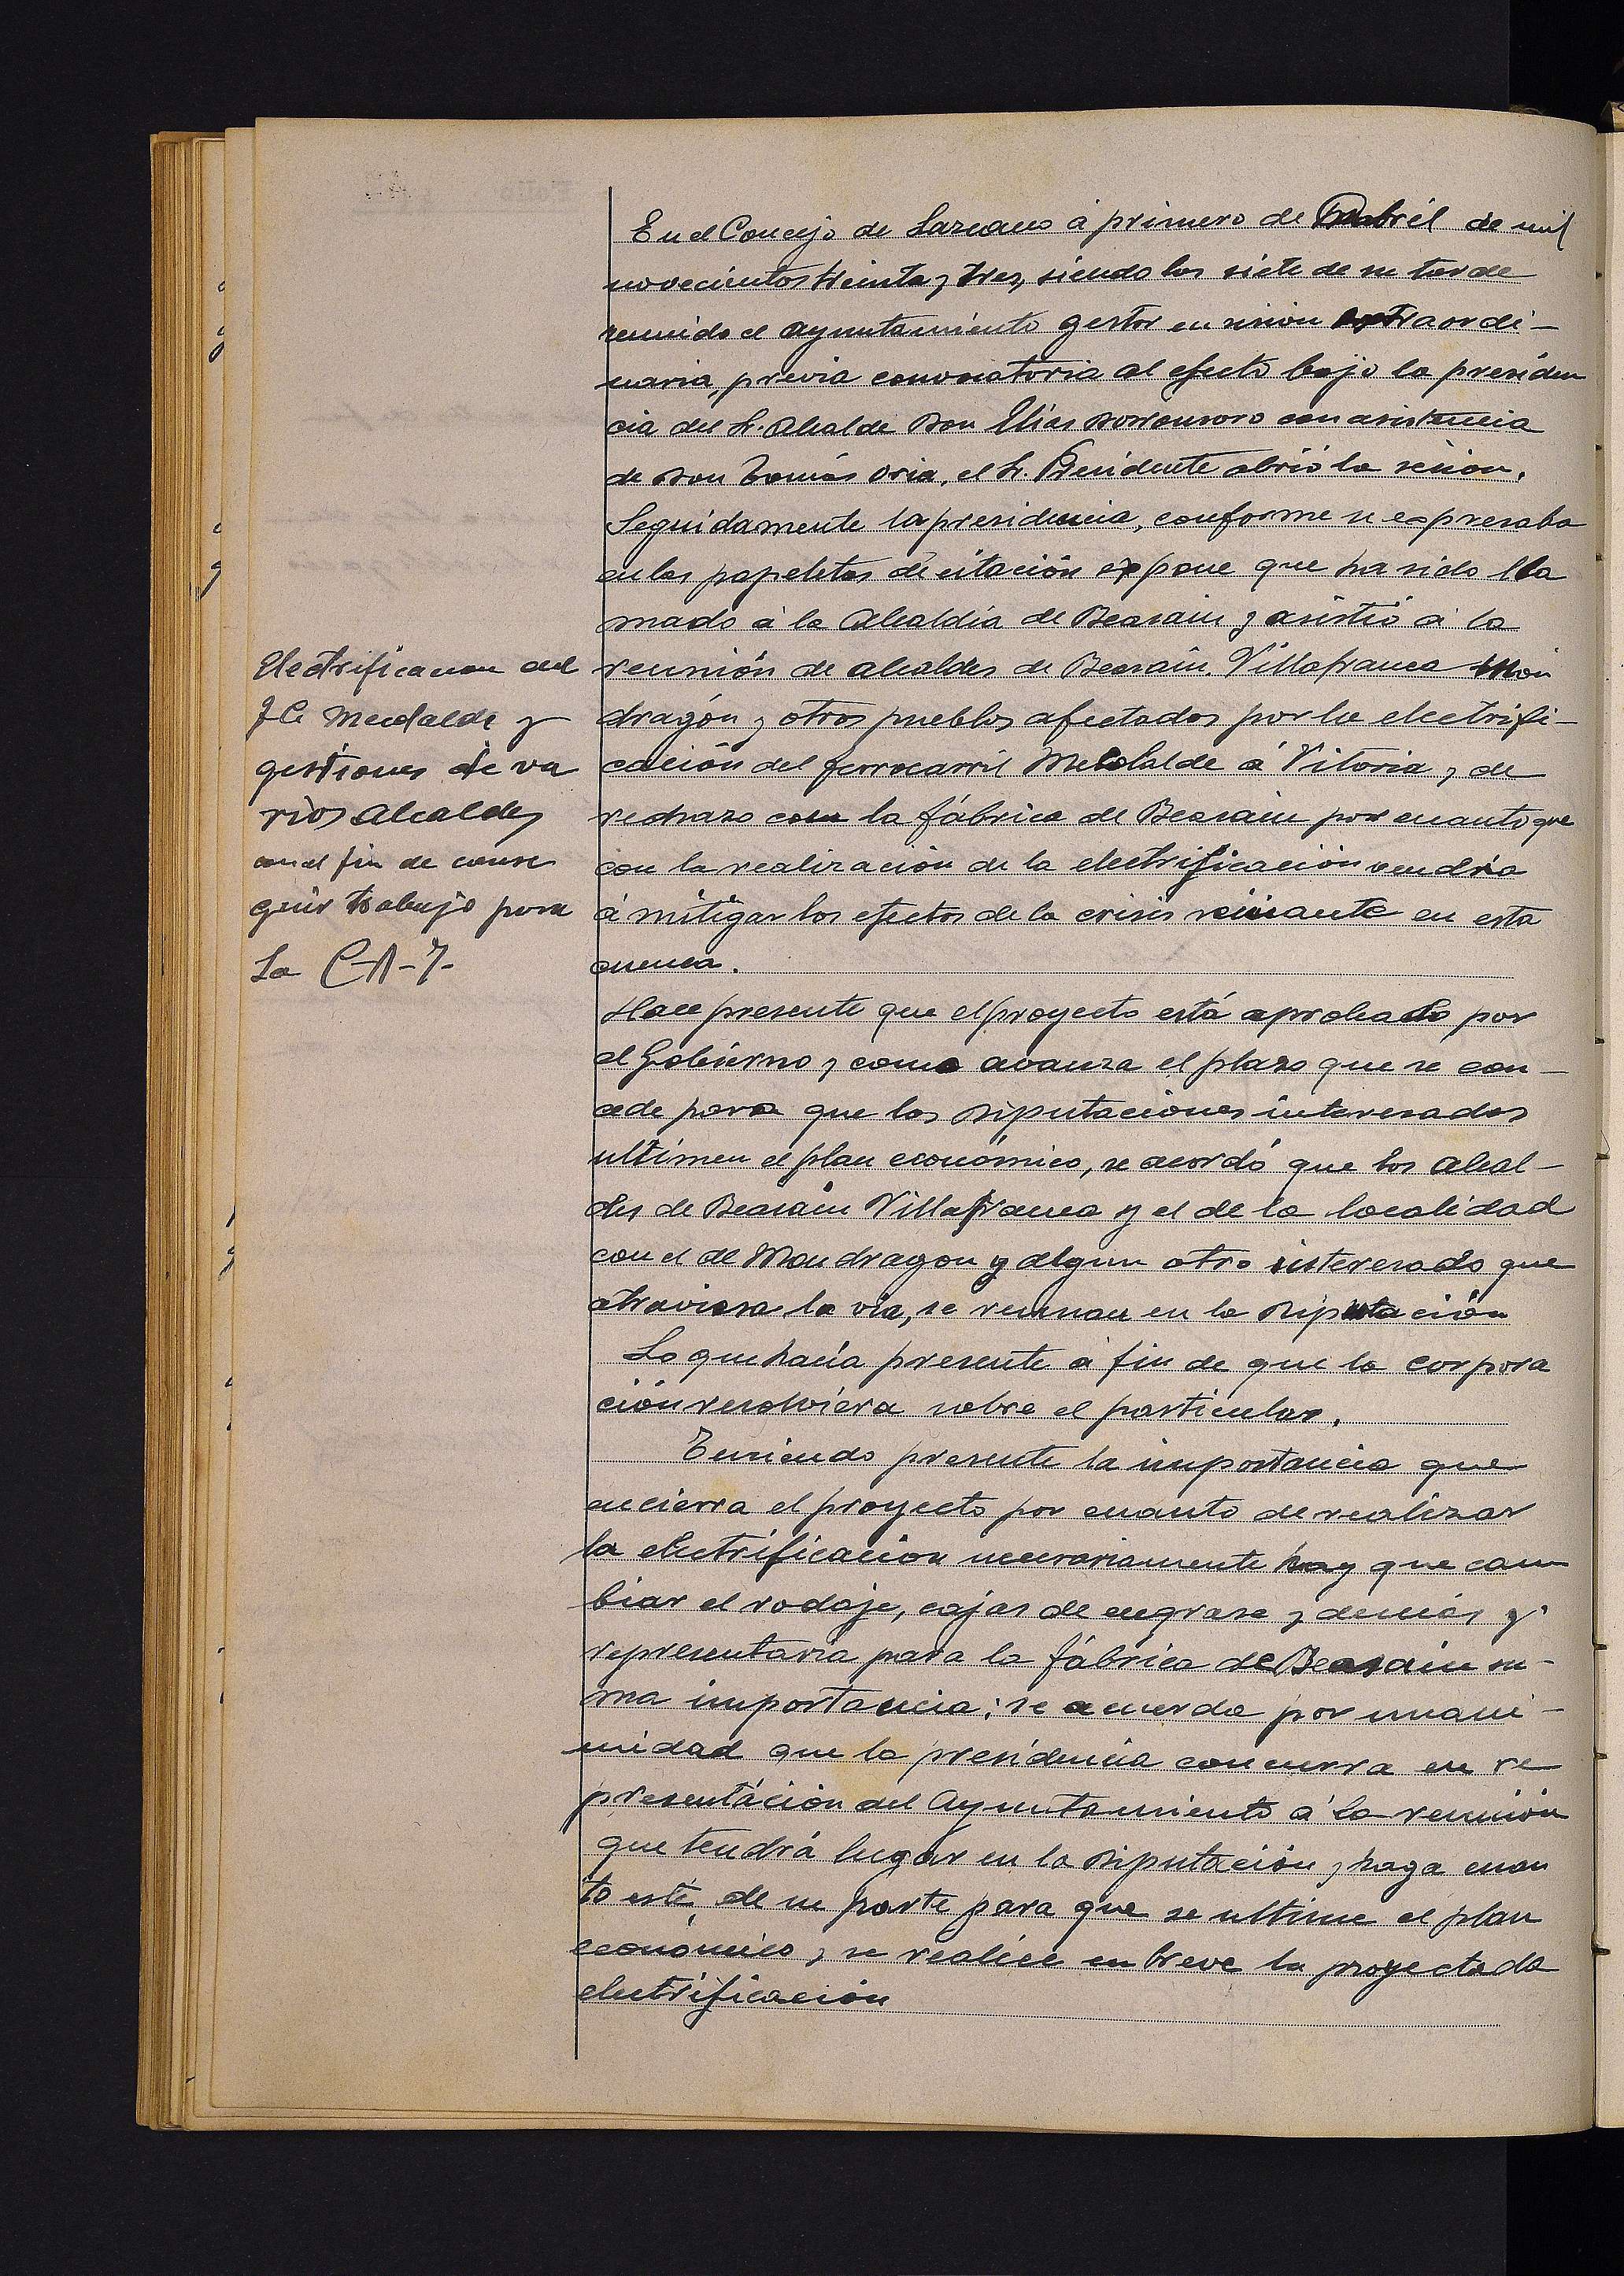 En el Concejo de Lazcano á primero de Abril de mil
novecientos treinta y tres, siendo las siete de su tarde
reunido el ayuntamiento gestor en sesion extraordi-
naria, previa convocatoria al efecto bajo la presiden
cia del Sr. Alcalde Don Elias con asistencia
de Don Tomás Oria, el Sr. Presidente abrió la sesion.
Seguidamente la presidencia, conforme se expresaba
en las papeletas de citación expone que ha sido lla
mado á la Alcaldia de Beasain y asistió á la
reunión de alcaldes de Beasain. Villafranca Mon
dragón y otros pueblos afectados por la electrifi-
cación del ferrocarril Mecolalde á Vitoria y de
rechazo con la fábrica de Beasain por cuanto que
con la realización de la electrificación vendria
á mitigar los efectos de la crisis reinante en esta
cuenca.
Hace presente que el proyecto está aprobado por
el Gobierno y como avanza el plazo que se con-
cede para que las Diputaciones interesadas
ultimen el plan económico, se acordó que los alcal-
des de Beasain Villafranca y el de la localidad
con el de Mondragon y algun otro interesado que
atraviesa la via, se reunan en la Diputación
Lo que hacia presente á fin de que la corpora
ción resolviera sobre el particular.
Teniendo presente la importancia que
encierra el proyecto por cuanto de realizar
la electrificacion necesariamente hay que cam
biar el rodaje, cajas de engrase y demás y
representaria para la fábrica de Beasain su-
ma importancia: se acuerda por unani-
midad que la presidencia concurra en re
presentación del Ayuntamiento á la reunión
que tendrá lugar en la Diputación y haga cuan
to esté de su parte para que se ultime el plan
económico y se realice en breve la proyectada
electrificación
Electrificacion del
F.C. Mecolalde y
gestiones de va
rios Alcaldes
con el fin de conse
guir trabajo para
La C-A-F-